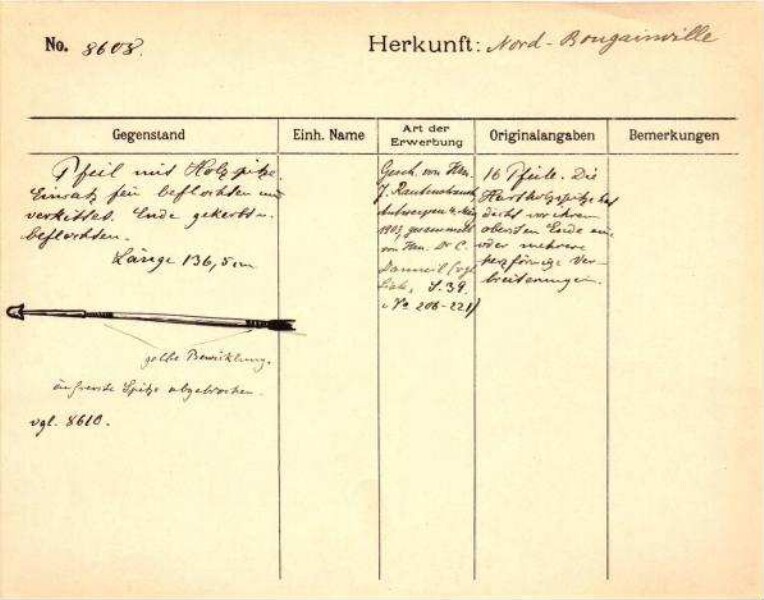 No. 8608.
Herkunft: Nord-Bougainville
Gegenstand
Einh. Name
Art der Erwerbung
Originalangaben
Bemerkungen
Pfeil mit Holzspitze.
Einsatz fein beflochten und
verkittet. Ende gekerbt u.
beflochten.
Länge 136,5 cm
gelbe Bewicklung.
äusserste Spitze abgebrochen.
vgl. 8610.
Gesch. von Hrn.
J. Rautenstrauch,
Antwerpen
1903, gesammelt
von Hrn. Dr C.
Danneil (vgl.
Liste, S. 39.
No 206-221)
16 Pfeile. Die
Hartholzspitze hat
dicht vor ihrem
obersten Ende eine
oder mehrere
herzförmige Ver-
breiterungen.